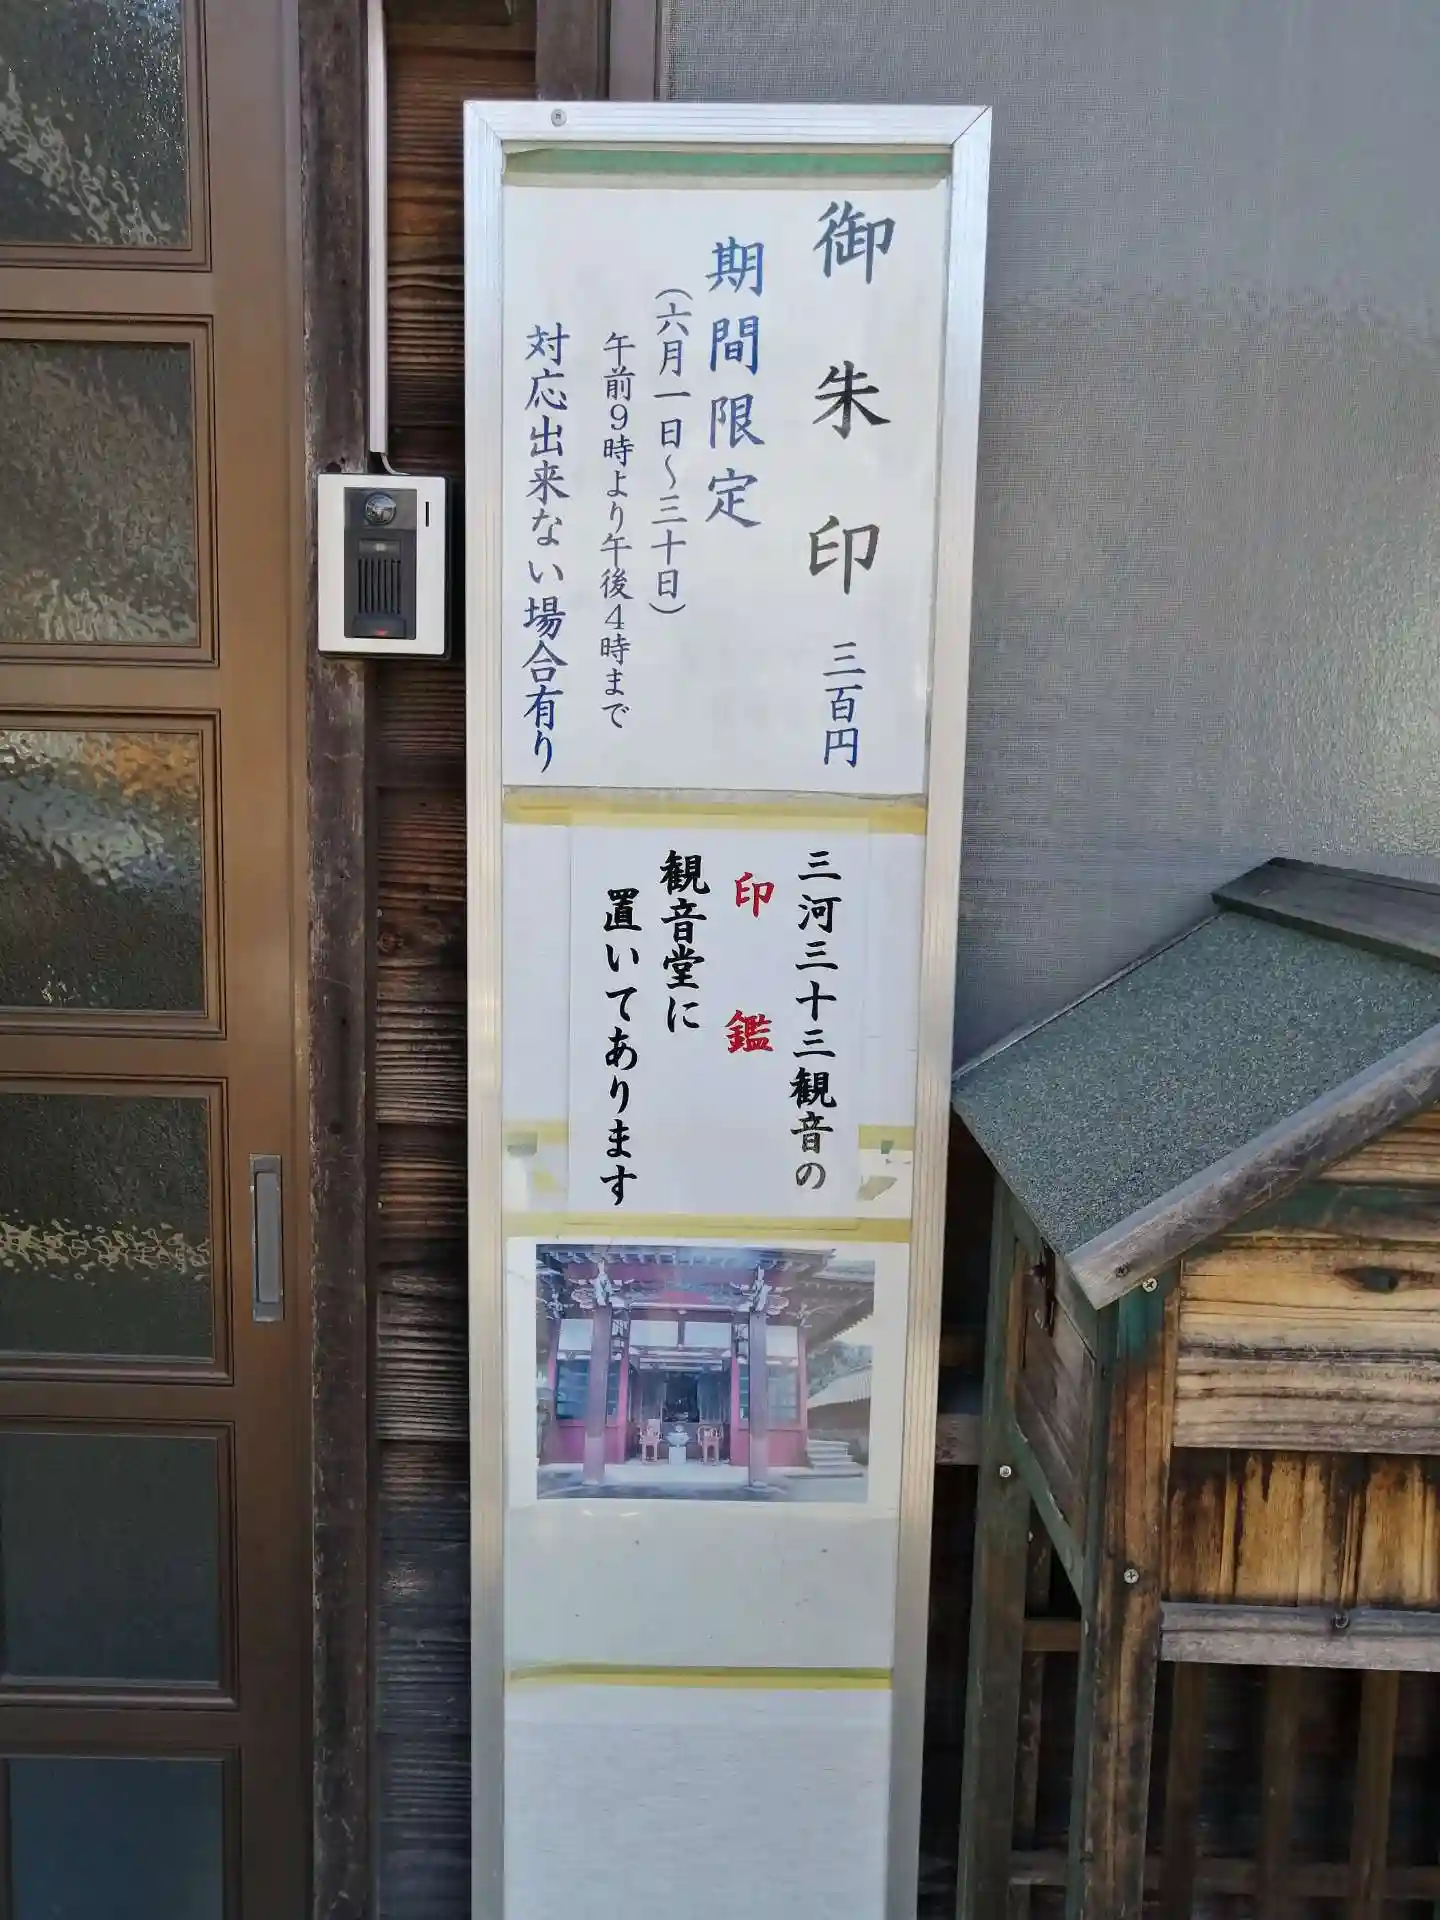 御朱印 三百円
期間限定
（六月一日～三十日）
午前9時より午後4時まで
対応出来ない場合有り
三河三十三観音の
印鑑
観音堂に
置いてあります